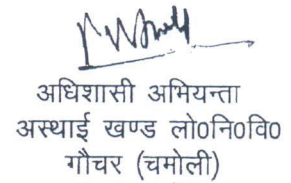 अधिशासी अभियन्ता
अस्थाई खण्ड लो०नि०वि०
गौचर (चमोली)